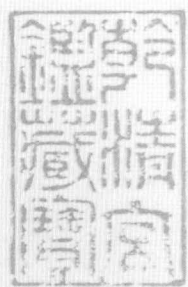 乾清宮
鑑藏寶